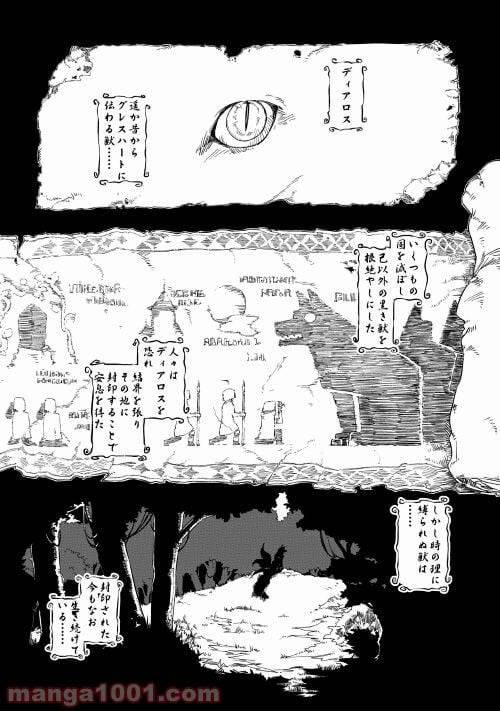 ディアロス
遥か昔から
グレスハートに
伝わる獣……
いくつもの
国を滅ぼし
己以外の黒き獣を
根絶やしにした
人々は
ディアロスを
恐れ
結界を張り
その地に
封印することで
安息を得た
しかし時の理に
縛られぬ獣は
……
封印された
今もなお
生き続けて
いる……
manga1001.com